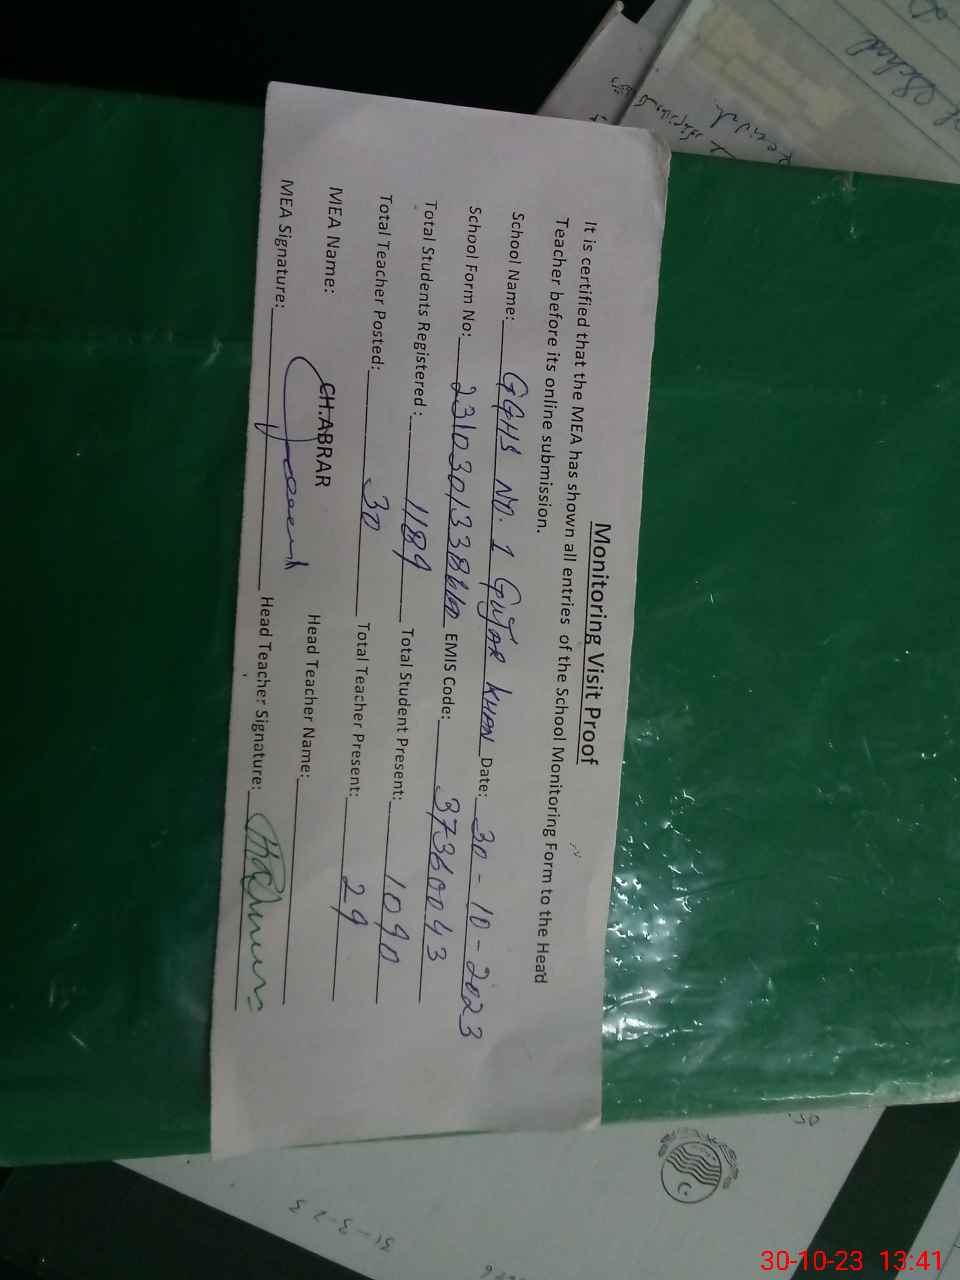 Monitoring Visit Proof
It is certified that the MEA has shown all entries of the School Monitoring Form to the Head
Teacher before its online submission.
School Name: GGHS NO. 1 GUJAR KHAN Date: 30-10-2023
School Form No: EMIS Code: 37360043
Total Students Registered: 1189 Total Student Present: 1090
Total Teacher Posted: 30 Total Teacher Present: 29
MEA Name: CH.ABRAR Head Teacher Name:
MEA Signature: Head Teacher Signature:
31-3-23
30-10-23 13:41